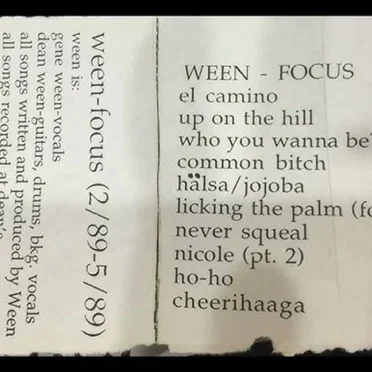 ween-focus (2/89-5/89)
ween is:
gene ween-vocals
dean ween-guitars, drums, bkg. vocals
all songs written and produced by Ween
all songs recorded at dean's
WEEN - FOCUS
el camino
up on the hill
who you wanna be?
common bitch
hälsa/jojoba
licking the palm
never squeal
nicole (pt. 2)
ho-ho
cheerihaaga